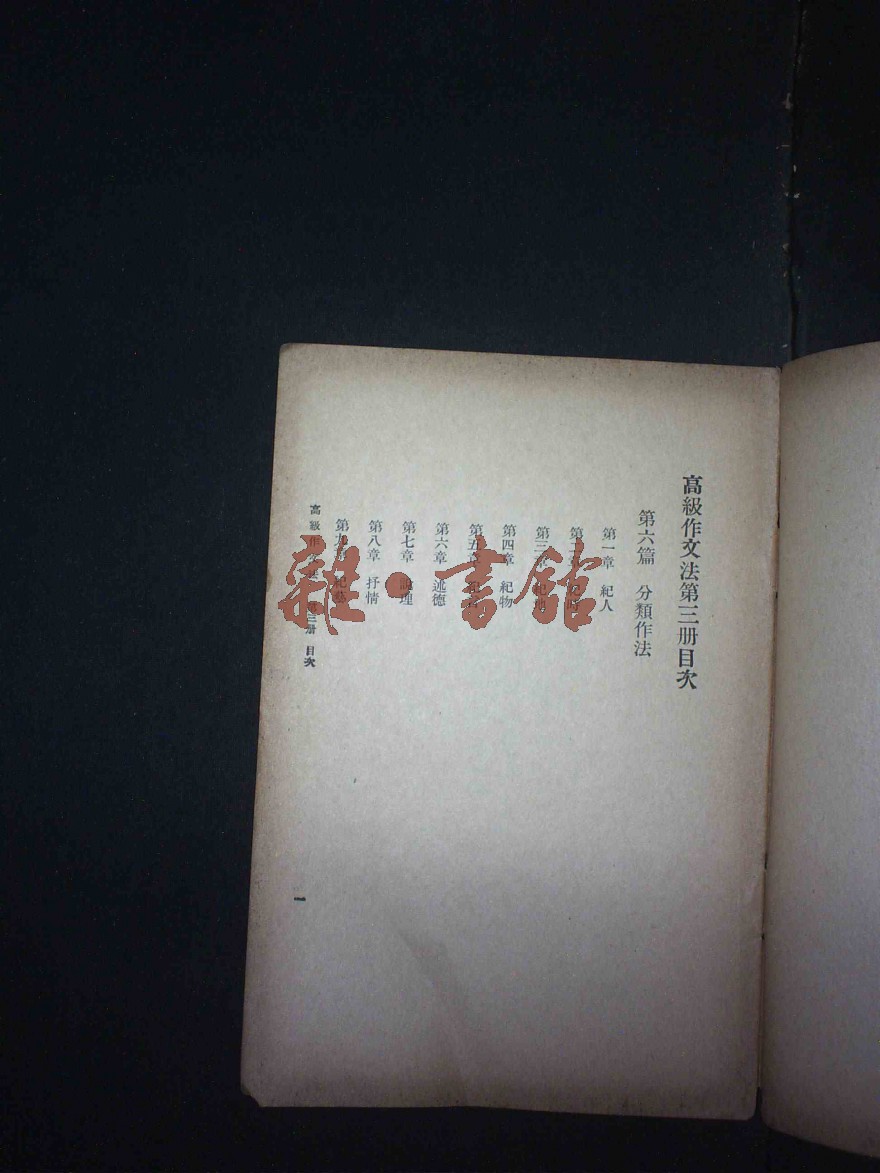 高級作文法第三册目次
第六篇 分類作法
第一章 紀人
第二章 紀時
第三章 紀地
第四章 紀物
第五章
第六章 述德
第七章 說理
第八章 抒情
第九章 紀藝
高級作文法 第三册 目次
一
雜·書館